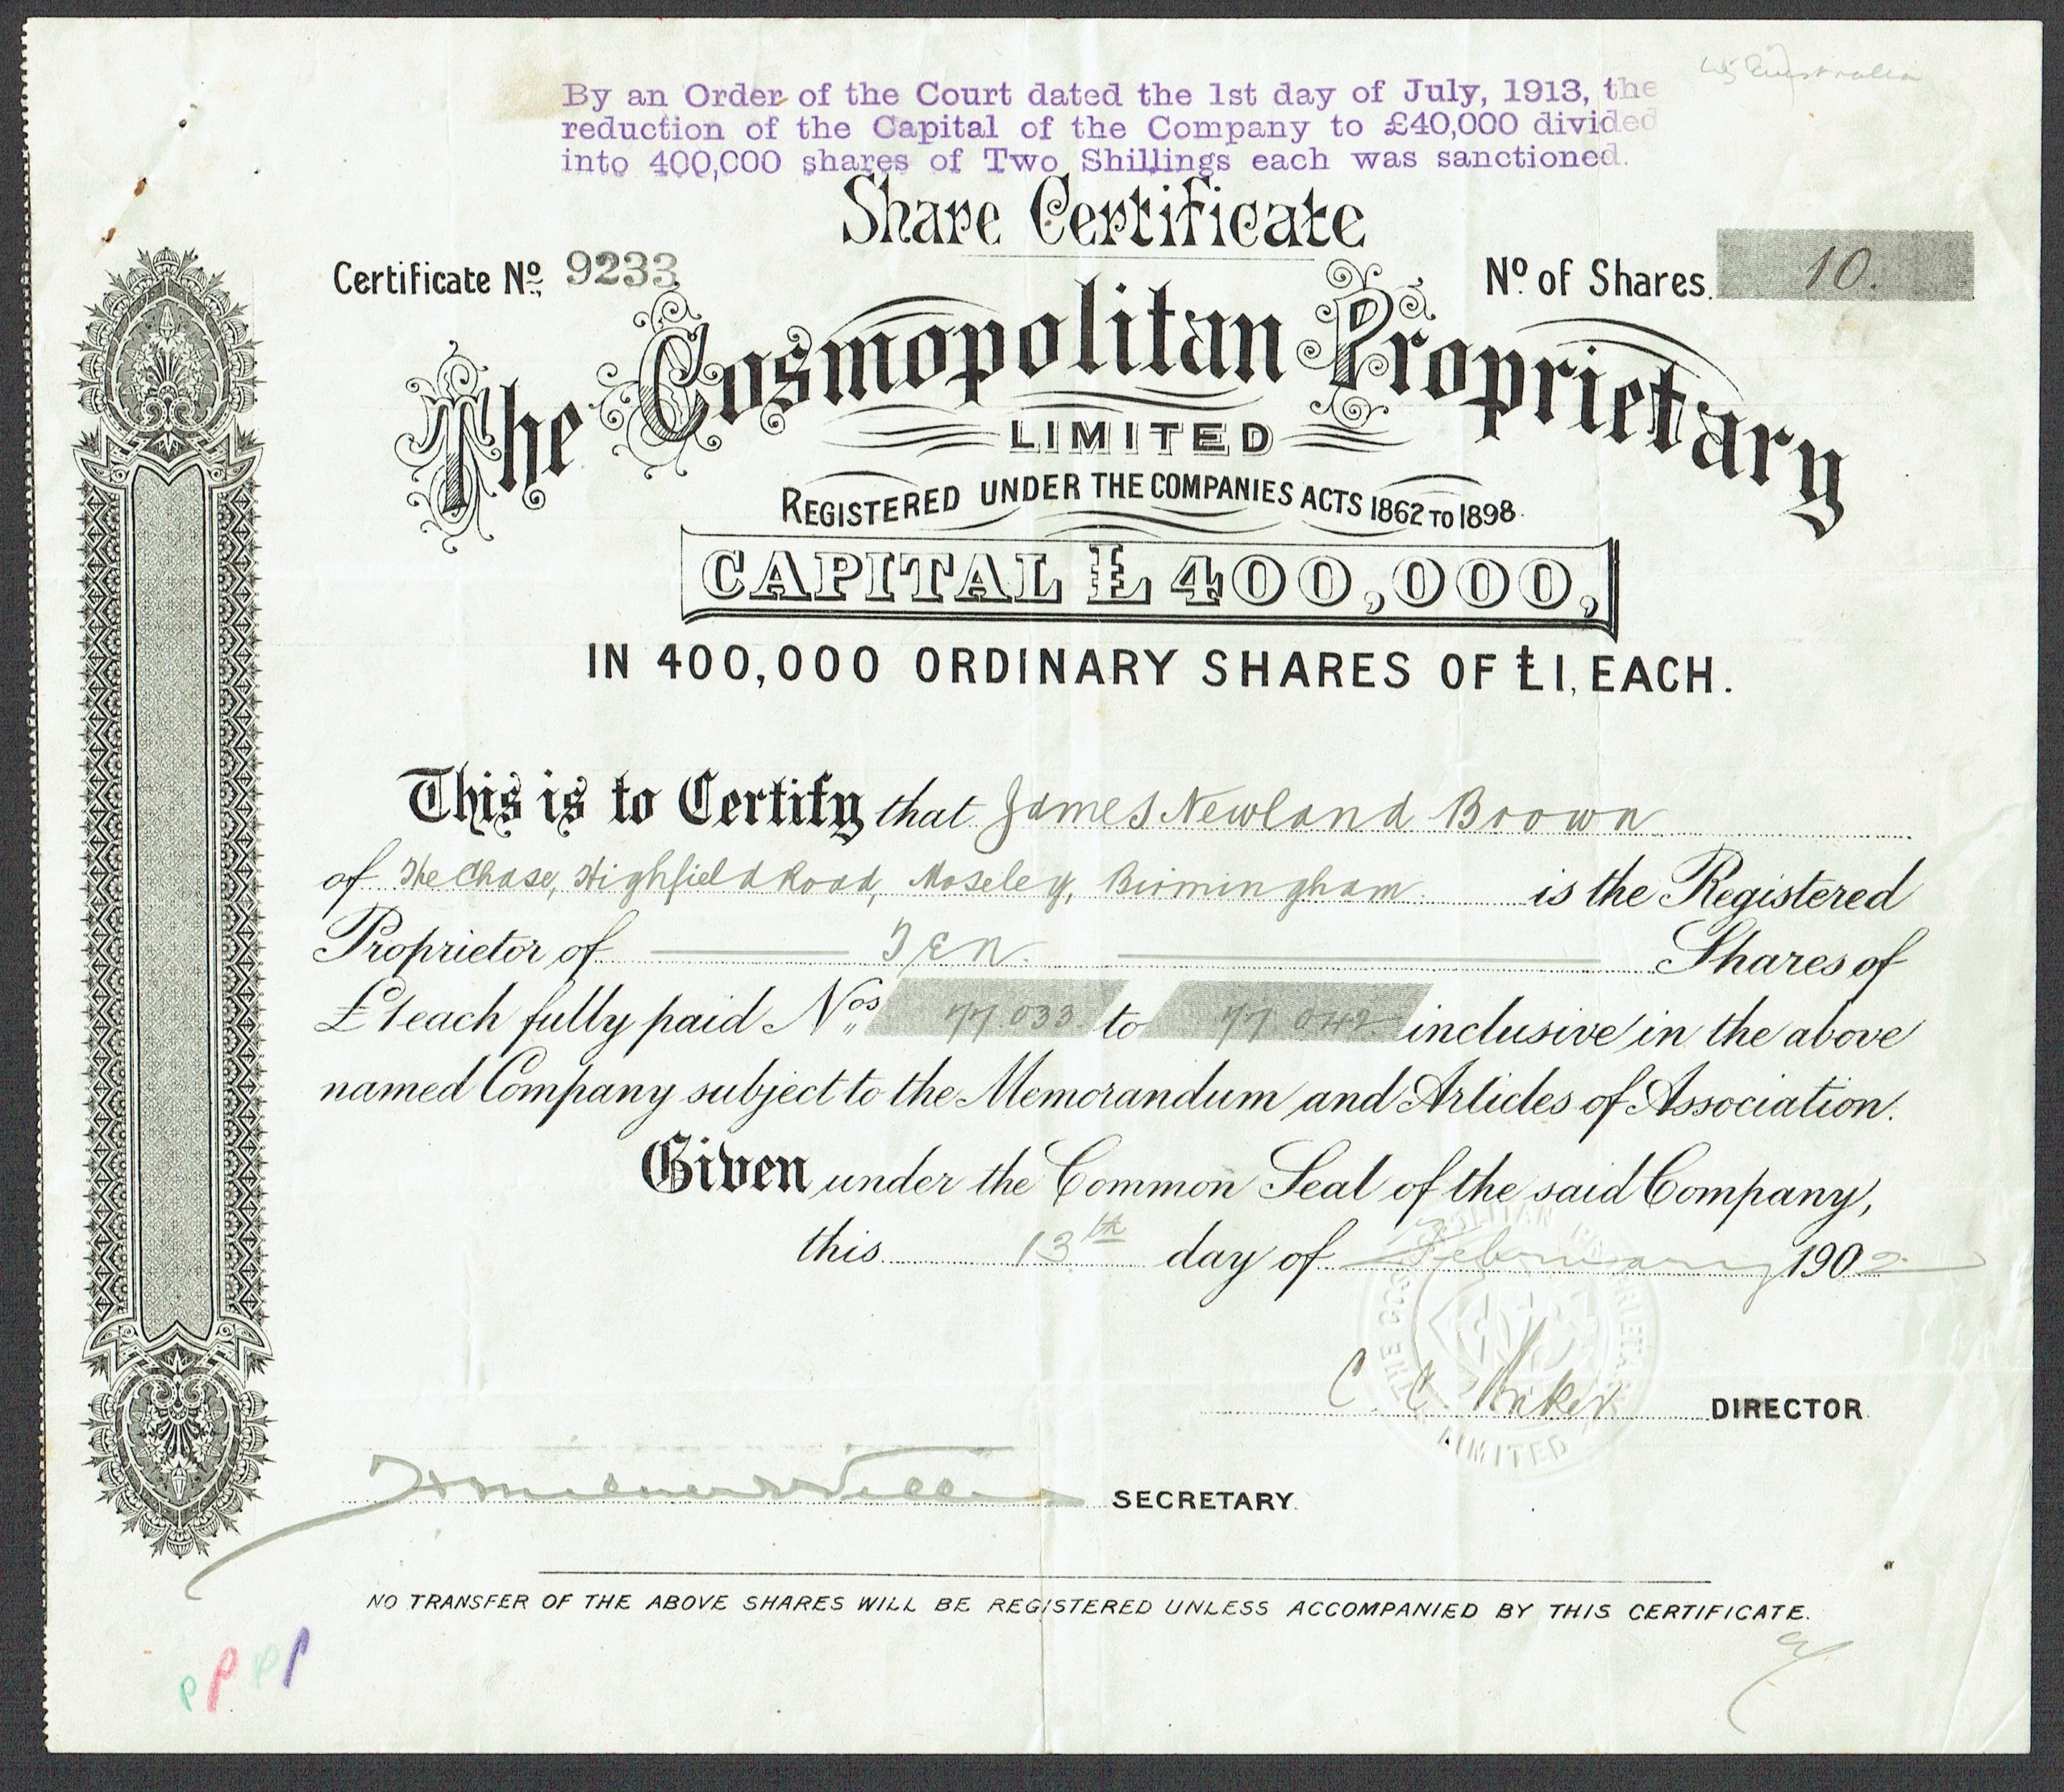 W Australia
By an Order of the Court dated the 1st day of July, 1913, the
reduction of the Capital of the Company to £40,000 divided
into 400,000 shares of Two Shillings each was sanctioned.
Share Certificate
Certificate No. 9233
No. of Shares. 10.
The Cosmopolitan Proprietary
LIMITED
REGISTERED UNDER THE COMPANIES ACTS 1862 TO 1898.
CAPITAL £400,000,
IN 400,000 ORDINARY SHARES OF £1, EACH.
This is to Certify that James Newland Brown
of The Chase, Highfield Road, Moseley, Birmingham is the Registered
Proprietor of Ten Shares of
£1 each fully paid Nos. 77.033 to 77 042 inclusive in the above
named Company subject to the Memorandum and Articles of Association.
Given under the Common Seal of the said Company,
this 13th day of February 1902
THE COSMOPOLITAN PROPRIETARY LIMITED
DIRECTOR.
SECRETARY.
NO TRANSFER OF THE ABOVE SHARES WILL BE REGISTERED UNLESS ACCOMPANIED BY THIS CERTIFICATE.
P P P P